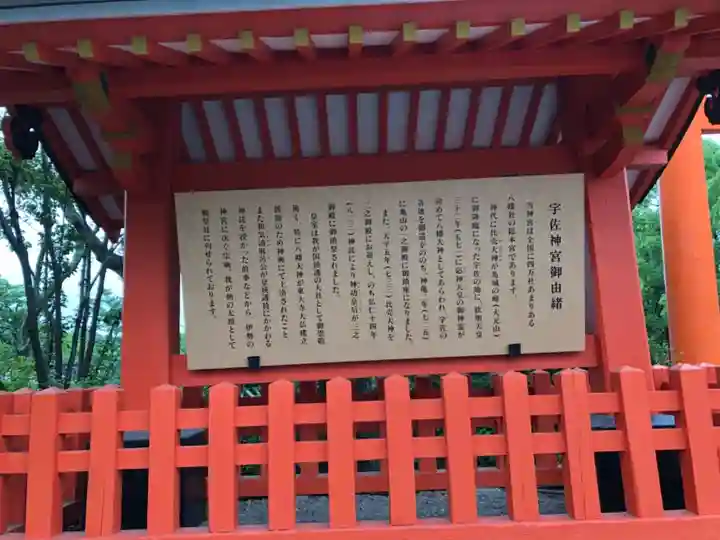 宇佐神宮御由緒
当神宮は全国に四万社あまりある
八幡社の総本宮であります
神代に比売大神が馬城の峰（大元山）
に御降臨になった宇佐の地に、欽明天皇
三十二年（五七一）に応神天皇の御神霊が
初めて八幡大神としてあらわれ 宇佐の
各地を御巡幸ののち、神亀二年（七二五）
に亀山の一之御殿に御鎮座になりました。
また、天平五年（七三三）比売大神を
二之御殿にお迎えし、のち弘仁十四年
（八二三）神託により神功皇后が三之
御殿に御鎮祭されました。
皇室は我が国鎮護の大社として御崇敬
篤く 特に八幡大神が東大寺大仏建立
援助のため神輿にて上洛されたこと
また和気清麻呂公が皇統護持にかかわる
神託を授かった故事などから 伊勢の
神宮に次ぐ宗廟、我が朝の太祖として
勅祭社に列せられております。